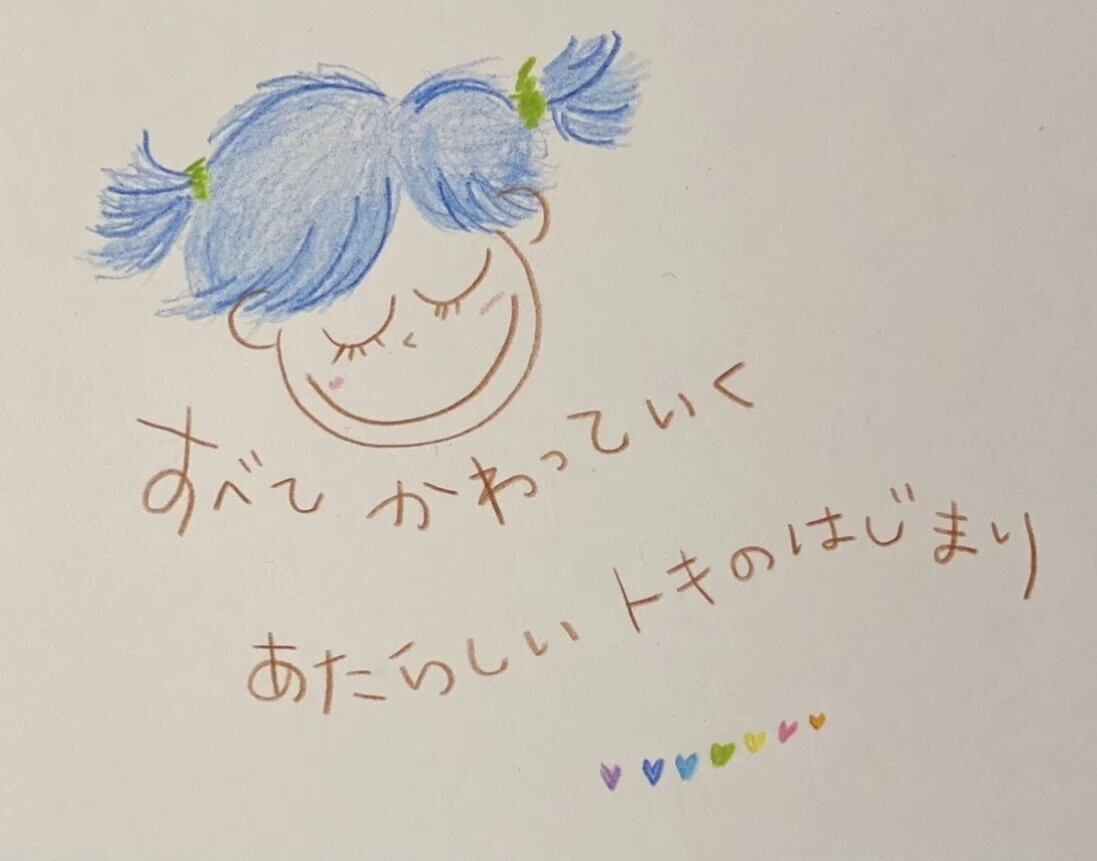 すべて かわっていく
あたらしい トキのはじまり